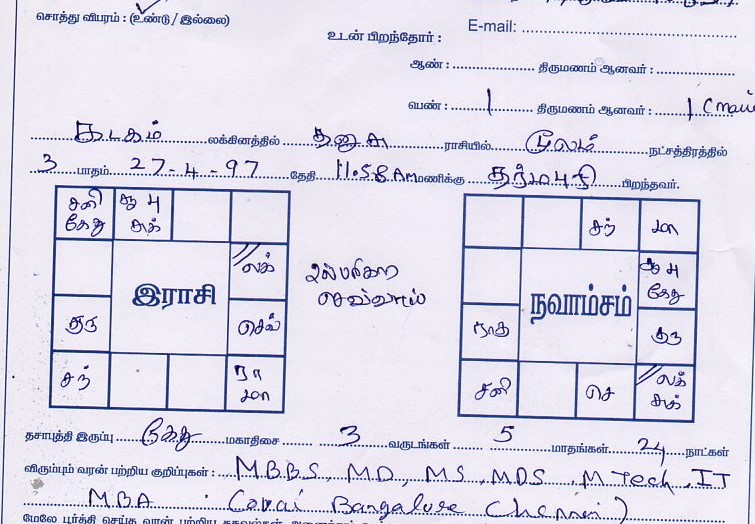 சொத்து விபரம் : (உண்டு / இல்லை)
E-mail:
உடன் பிறந்தோர் :
ஆண் : திருமணம் ஆனவர் :
பெண் : 1 திருமணம் ஆனவர் : 1
கடகம் லக்கினத்தில் தனுசு ராசியில் மூலம் நட்சத்திரத்தில்
3 பாதம் 27-4-97 தேதி 11.58 AM மணிக்கு தர்மபுரி பிறந்தவர்.
சனி கேது ஆ பு சுக்
லக்
இராசி
குரு செவ்
சந் ரா மா
பரிகார
செவ்வாய்
சந் மா
ஆ பு கேது
நவாம்சம்
ராகு குரு
சனி செ லக் சுக்
தசாபுத்தி இருப்பு கேது மகாதிசை 3 வருடங்கள் 5 மாதங்கள் 24 நாட்கள்
விரும்பும் வரன் பற்றிய குறிப்புகள் : M.B.B.S, MD, MS, MDS M Tech, IT
MBA (Covai Bangalore Chennai)